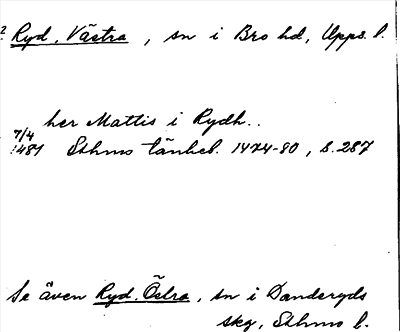 Ryd, Västra, sn i Bro hd, Upps. l.
her Mattis i Rydh..
7/4
1481 Sthms tänkeb. 1474-80, s. 287
Se även Ryd. Östra, sn i Danderyds
skg, Sthms l.